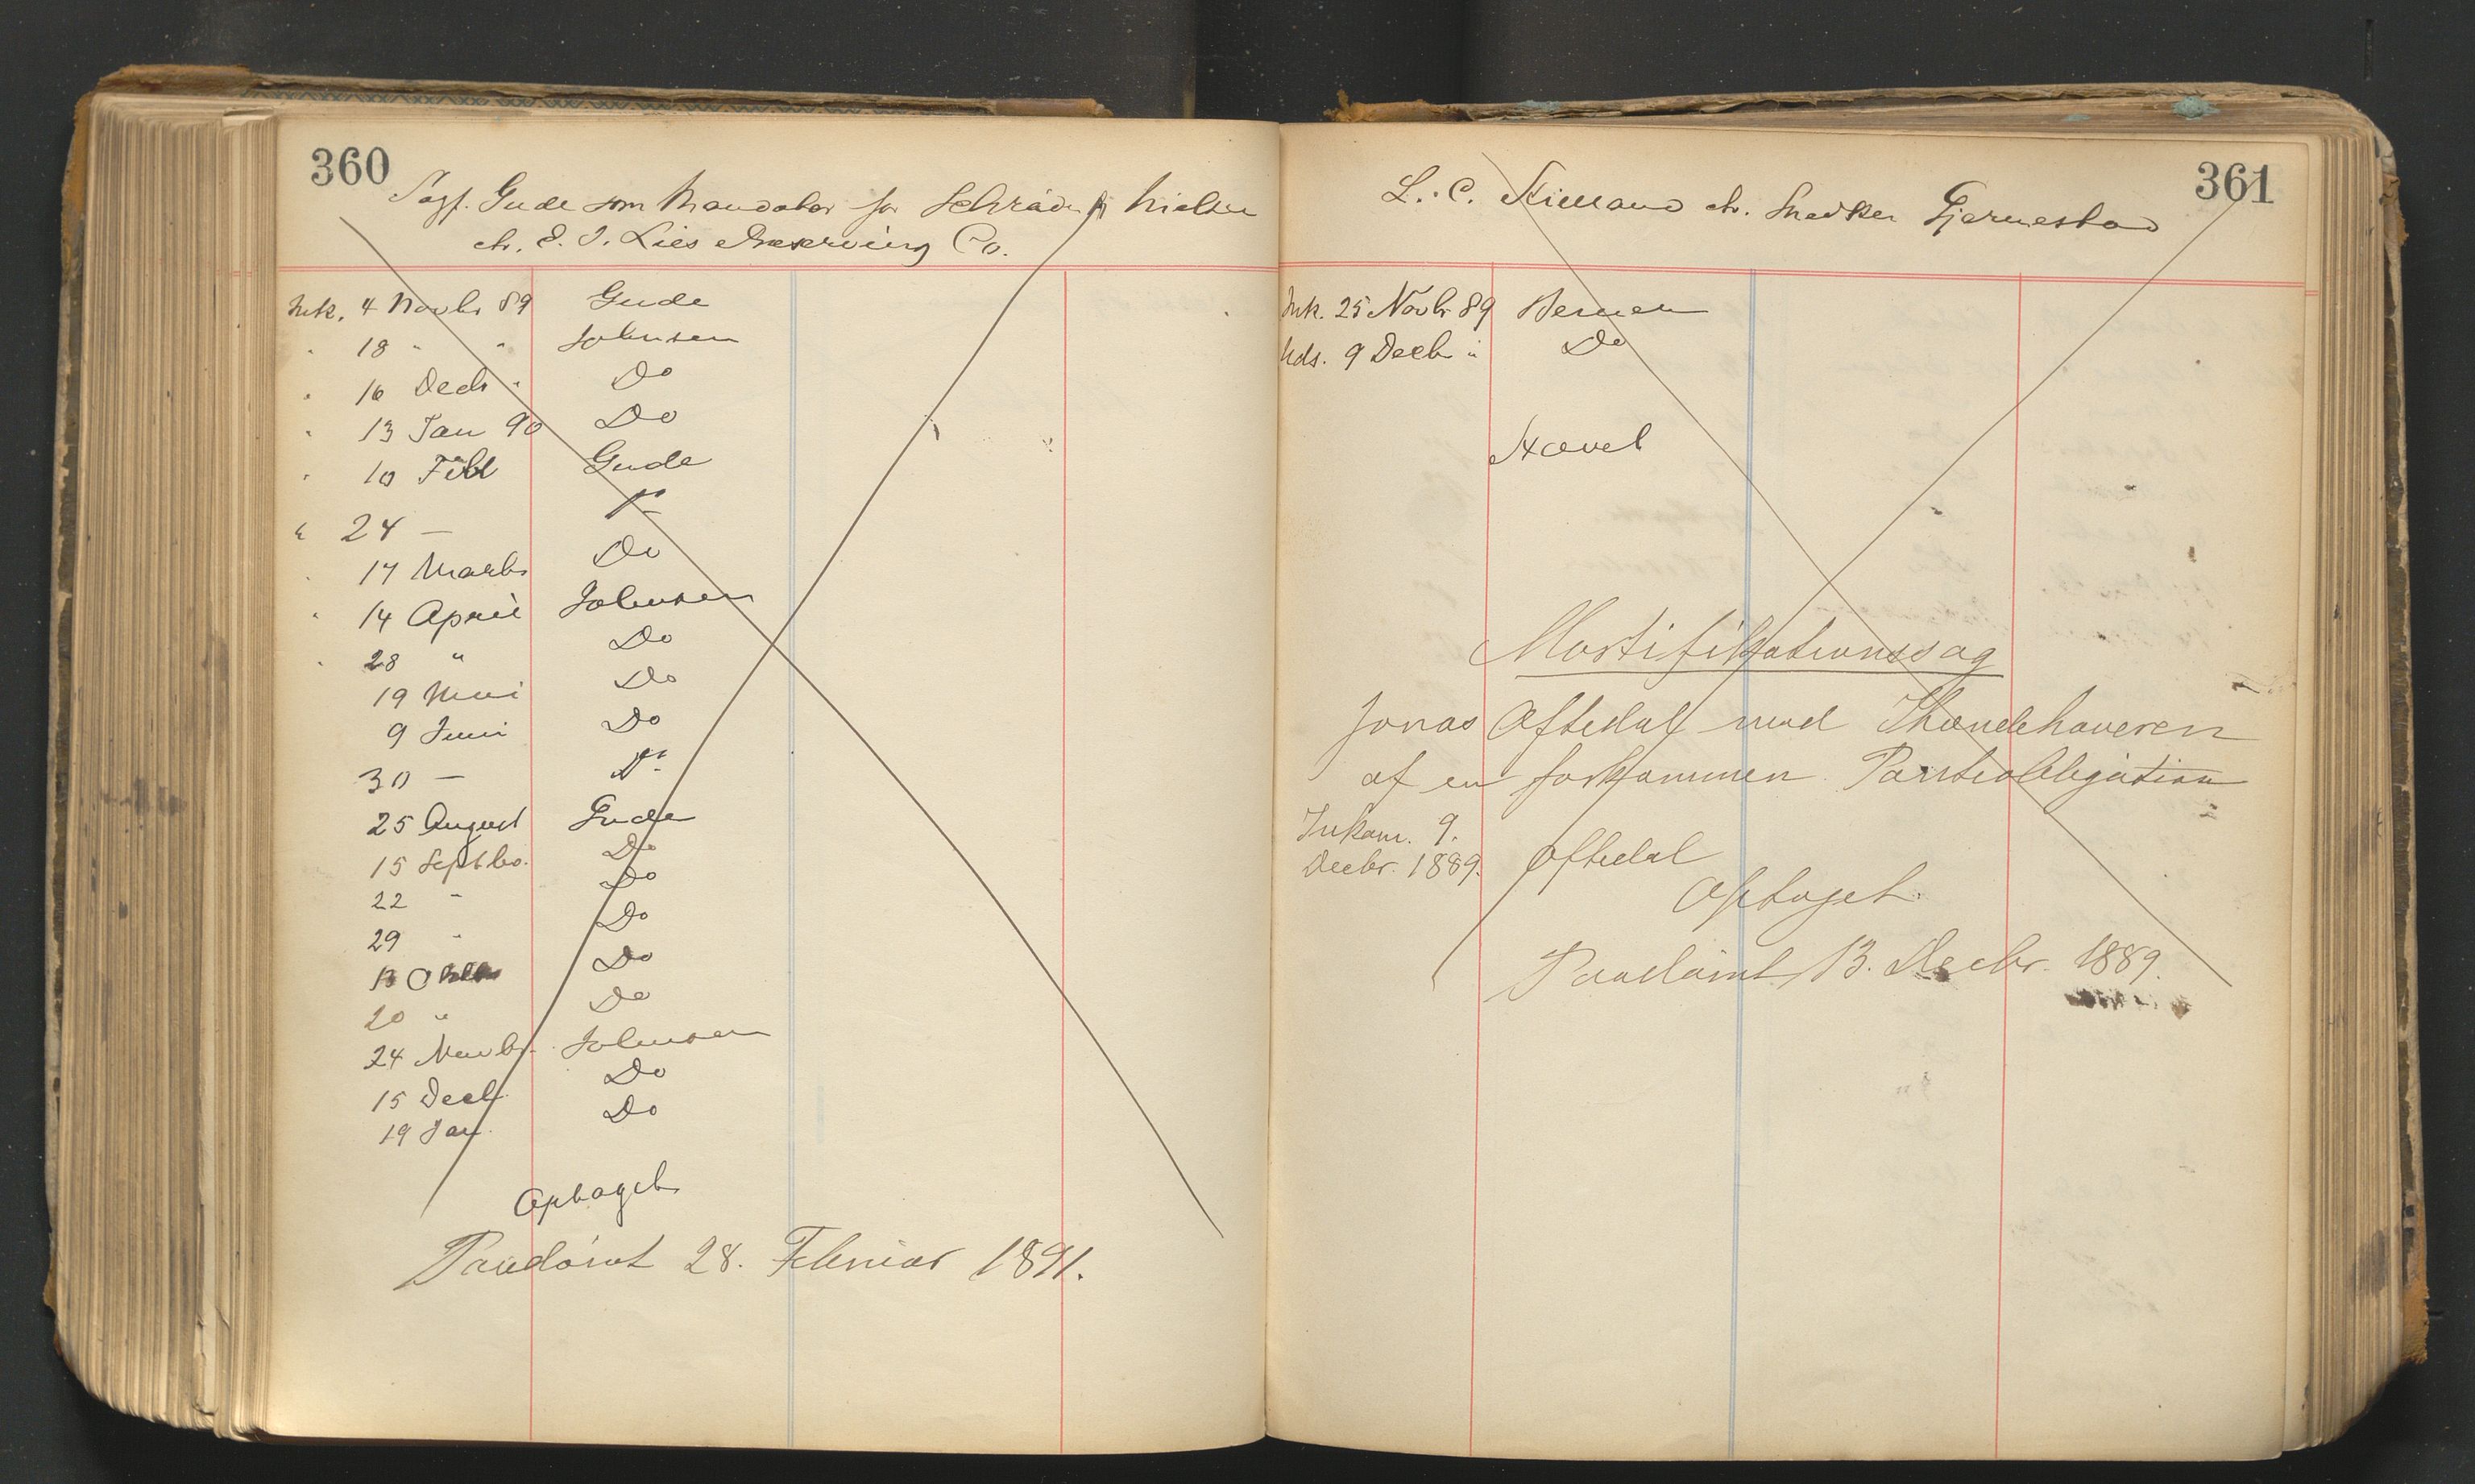 360
Sagf. Gude som Mandatar for Schrader & Nielsen
ctr. E. I. Lies Preserving Co.
Ink. 4 Novbr 89 Gude
" 18 " " Johnsen
" 16 Decbr " Do
" 13 Jan 90 Do
" 10 Febr Gude
" 24 — Do
" 17 Marts Do
" 14 April Johnsen
" 28 " Do
19 Mai Do
9 Juni Do
30 — Do
25 August Gude
15 Septbr. Do
22 " Do
29 " Do
13 Do
20 " Do
24 Novbr. Johnsen
15 Decbr Do
19 Jan. Do
Optaget
Paadømt 28. Februar 1891.
361
L. C. Kielland ctr. Snedker Gjermestad
Ink. 25 Novbr 89 Berner
Uds. 9 Decbr " Do
Hævet
Mortifikationssag
Jonas Oftedal mod Ihændehaveren
af en forkommen Partialobligation
Inkam. 9.
Decbr. 1889. Oftedal
Optaget.
Paadømt 13. Decbr. 1889.